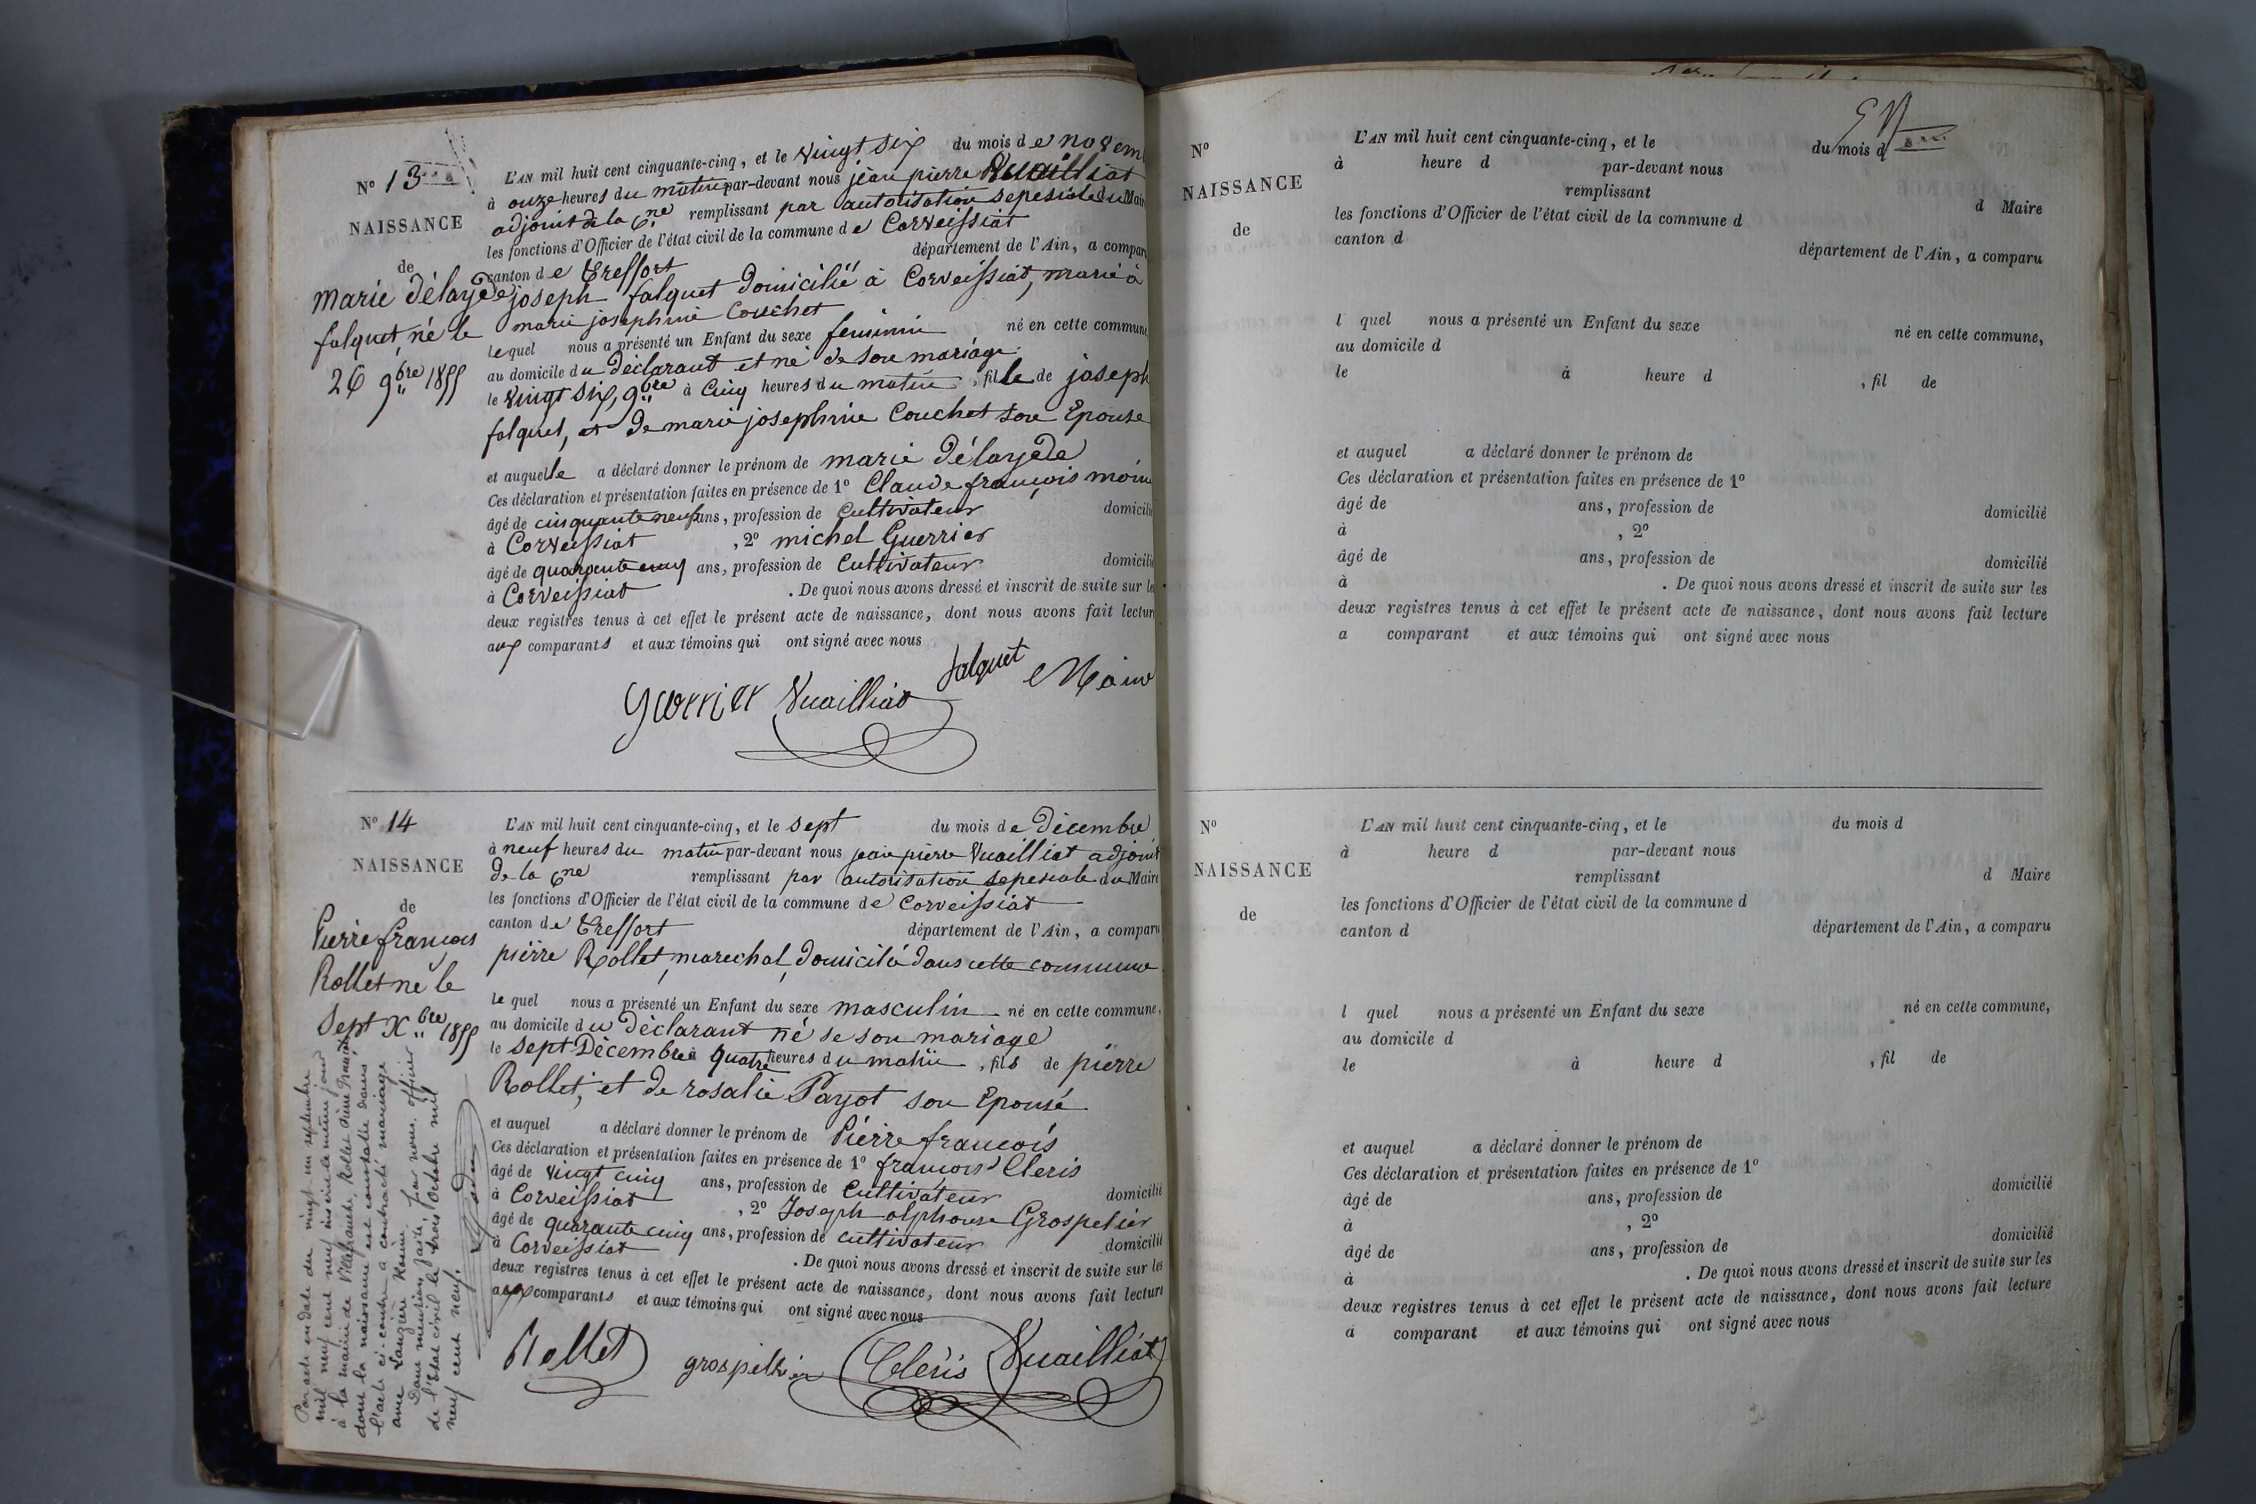 N° 13
NAISSANCE
de
marie délayde
falquet, né le
26 9bre 1855
L'AN mil huit cent cinquante-cinq, et le vingt six du mois de novem
à onze heures du matin par-devant nous jean pierre Vuailliat
adjoint de la Cne remplissant par autorisation sepesiale du Maire
les fonctions d'Officier de l'état civil de la commune de Corveissiat
canton de Treffort département de l'Ain, a comparu
joseph falquet domicilié à Corveissiat, marié à
marie josephine Couchet
lequel nous a présenté un Enfant du sexe feminin né en cette commune,
au domicile du déclarant et né de son mariage
le vingt six, 9bre à cinq heures du matin, fille de joseph
falquet, et de marie josephine Couchet son Epouse
et auquelle a déclaré donner le prénom de marie délayde
Ces déclaration et présentation faites en présence de 1° Claude françois moine
âgé de cinquante neuf ans, profession de Cultivateur domicilié
à Corveissiat, 2° michel Guerrier
âgé de quarante cinq ans, profession de Cultivateur domicilié
à Corveissiat. De quoi nous avons dressé et inscrit de suite sur les
deux registres tenus à cet effet le présent acte de naissance, dont nous avons fait lecture
aux comparants et aux témoins qui ont signé avec nous
falquet Moine
Guerrier Vuailliat
N° 14
NAISSANCE
de
Pierre françois
Rollet né le
Sept Xbre 1855
L'AN mil huit cent cinquante-cinq, et le sept du mois de Décembre
à neuf heures du matin par-devant nous jean pierre Vuailliat adjoint
de la Cne remplissant par autorisation sepesiale du Maire
les fonctions d'Officier de l'état civil de la commune de Corveissiat
canton de Treffort département de l'Ain, a comparu
pierre Rollet, marechal, domicilié dans cette commune
lequel nous a présenté un Enfant du sexe masculin né en cette commune,
au domicile du déclarant né de son mariage
le sept Décembre à quatre heures du matin, fils de pierre
Rollet, et de rosalie Payot son Epouse
et auquel a déclaré donner le prénom de Pierre françois
Ces déclaration et présentation faites en présence de 1° françois Cleris
âgé de vingt cinq ans, profession de Cultivateur domicilié
à Corveissiat, 2° Joseph alphonse Grospelier
âgé de quarante cinq ans, profession de cultivateur domicilié
à Corveissiat. De quoi nous avons dressé et inscrit de suite sur les
deux registres tenus à cet effet le présent acte de naissance, dont nous avons fait lecture
aux comparants et aux témoins qui ont signé avec nous
Rollet grospellier Cléris Vuailliat
Par acte en date du vingt un septembre
mil neuf cent neuf inscrit le même jour
à la mairie de Villefranche, Rollet Pierre François
dont la naissance est constatée dans
l'acte ci-contre a contracté mariage
avec Lauzière
Dont mention faite par nous, officier
de l'Etat civil le trois Octobre mil
neuf cent neuf.
N°
NAISSANCE
de
L'AN mil huit cent cinquante-cinq, et le du mois d
à heure d par-devant nous
remplissant d Maire
les fonctions d'Officier de l'état civil de la commune d
canton d département de l'Ain, a comparu
l quel nous a présenté un Enfant du sexe né en cette commune,
au domicile d
le à heure d , fil de
et auquel a déclaré donner le prénom de
Ces déclaration et présentation faites en présence de 1°
âgé de ans, profession de domicilié
à , 2°
âgé de ans, profession de domicilié
à . De quoi nous avons dressé et inscrit de suite sur les
deux registres tenus à cet effet le présent acte de naissance, dont nous avons fait lecture
a comparant et aux témoins qui ont signé avec nous
N°
NAISSANCE
de
L'AN mil huit cent cinquante-cinq, et le du mois d
à heure d par-devant nous
remplissant d Maire
les fonctions d'Officier de l'état civil de la commune d
canton d département de l'Ain, a comparu
l quel nous a présenté un Enfant du sexe né en cette commune,
au domicile d
le à heure d , fil de
et auquel a déclaré donner le prénom de
Ces déclaration et présentation faites en présence de 1°
âgé de ans, profession de domicilié
à , 2°
âgé de ans, profession de domicilié
à . De quoi nous avons dressé et inscrit de suite sur les
deux registres tenus à cet effet le présent acte de naissance, dont nous avons fait lecture
a comparant et aux témoins qui ont signé avec nous